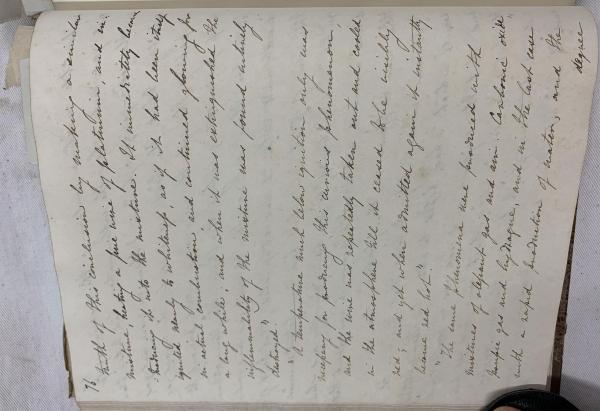 76
truth of this conclusion by making a similar
mixture, heating a fine wire of platinum, and in-
troducing it into the mixture. It immediately became
ignited nearly to whiteness, as if it had been itself
in actual combustion and continued glowing for
a long while, and when it was extinguished the
inflammability of the mixture was found entirely
destroyed."
"A temperature much below ignition only was
necessary for producing this curious phenomenon,
and the wire was repeatedly taken out and cooled
in the atmosphere till it ceased to be visibly
red; and yet when admitted again it instantly
became red hot."
"The same phenomena were produced with
mixtures of olefiant gas and air. Carbonic oxide"
Prussic gas and hydrogen, and in the last case
with a rapid production of water; and the
degree